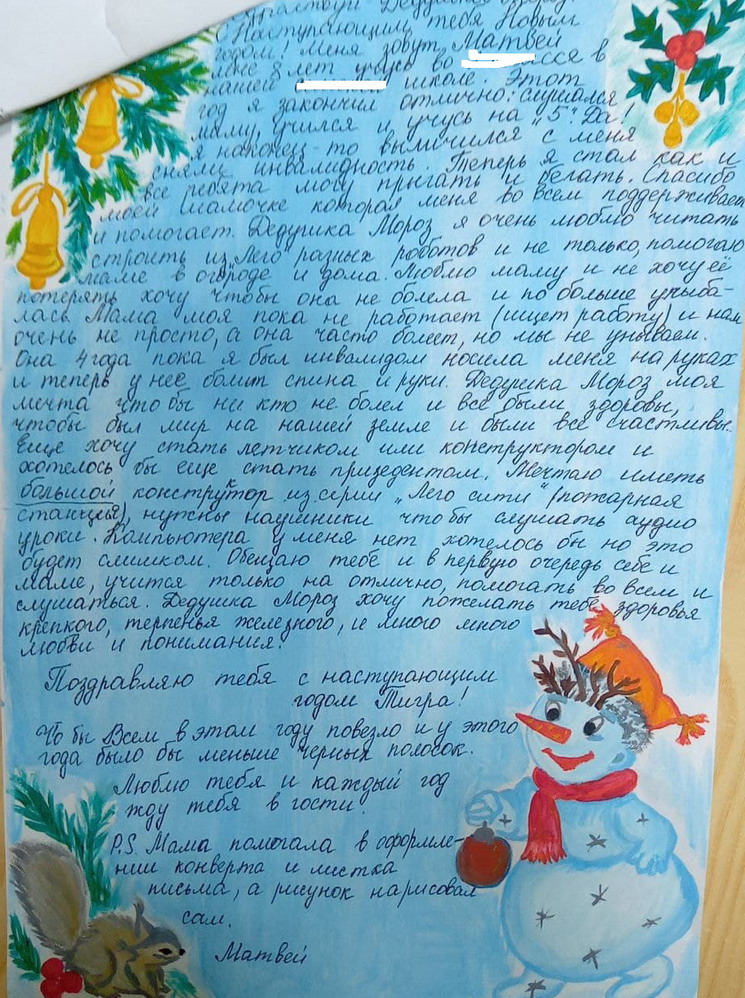 Здравствуй Дедушка Мороз!
С Наступающим тебя Новым
годом! Меня зовут Матвей
мне 8 лет учусь во в
нашей школе. Этот
год я закончил отлично: слушался
маму, учился и учусь на „5". Да!
я наконец-то вылечился с меня
сняли инвалидность. Теперь я стал как и
все ребята могу прыгать и бегать. Спасибо
моей мамочке которая меня во всем поддерживает
и помогает. Дедушка Мороз я очень люблю читать
строить из Лего разных роботов и не только, помогаю
маме в огороде и дома. Люблю маму и не хочу её
потерять хочу чтобы она не болела и по больше улыба-
лась. Мама моя пока не работает (ищет работу) и нам
очень не просто, а она часто болеет, но мы не унываем.
Она 4 года пока я был инвалидом носила меня на руках
и теперь у неё болит спина и руки. Дедушка Мороз моя
мечта что бы ни кто не болел и все были здоровы,
чтобы был мир на нашей земле и были все счастливы.
Еще хочу стать летчиком или конструктором и
хотелось бы еще стать призедентом. Мечтаю иметь
большой конструктор из серии „Лего сити" (пожарная
станция), нужны наушники что бы слушать аудио
уроки. Компьютера у меня нет хотелось бы но это
будет слишком. Обещаю тебе и в первую очередь себе и
маме, учится только на отлично, помогать во всем и
слушаться. Дедушка Мороз хочу пожелать тебе здоровья
крепкого, терпенья железного, и много много
любви и понимания!
Поздравляю тебя с наступающим
годом Тигра!
Что бы Всем в этом году повезло и у этого
года было бы меньше черных полосок.
Люблю тебя и каждый год
жду тебя в гости.
P.S. Мама помогала в оформле-
нии конверта и листка
письма, а рисунок нарисовал
сам.
Матвей